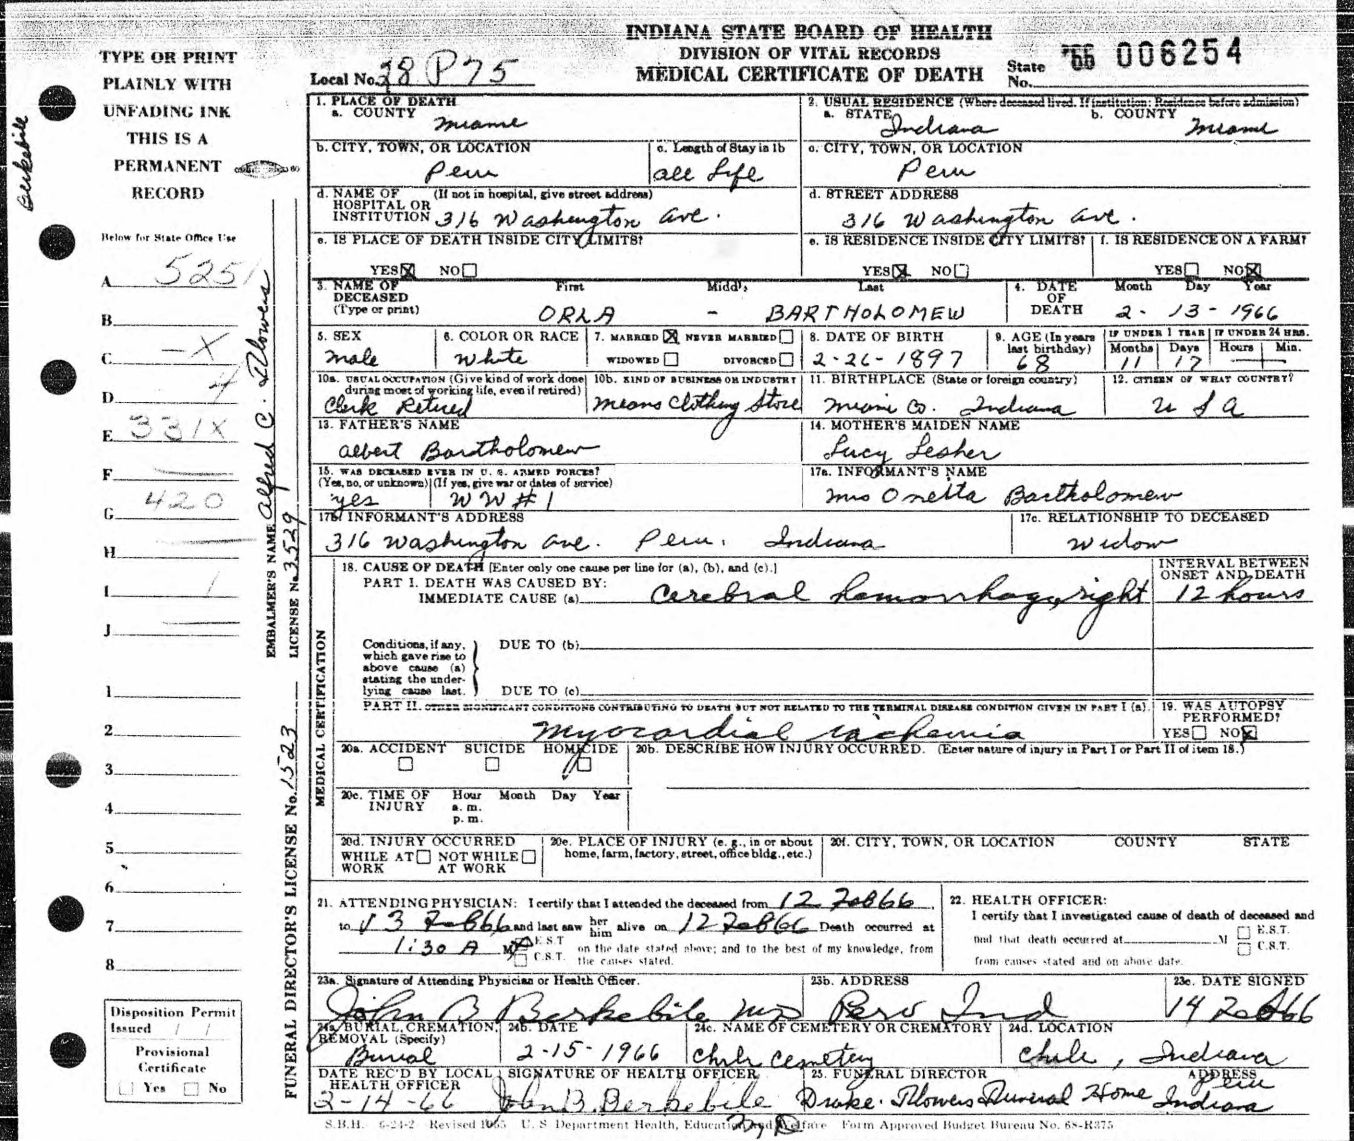 INDIANA STATE BOARD OF HEALTH
DIVISION OF VITAL RECORDS
MEDICAL CERTIFICATE OF DEATH
Local No. 28 P75
State No. '66 006254
TYPE OR PRINT
PLAINLY WITH
UNFADING INK
THIS IS A
PERMANENT
RECORD
Berkebile
Below for State Office Use
A 5251
B
C -X
D 4
E 331X
F
G 420
H
I 1
J
1
2
3
4
5
6
7
8
Disposition Permit
Issued / /
Provisional
Certificate
Yes No
EMBALMER'S NAME Alfred C. Flowers
LICENSE No. 3529
FUNERAL DIRECTOR'S LICENSE No. 1523
1. PLACE OF DEATH
a. COUNTY Miami
2. USUAL RESIDENCE (Where deceased lived. If institution: Residence before admission)
a. STATE Indiana b. COUNTY Miami
b. CITY, TOWN, OR LOCATION Peru
c. Length of Stay in 1b all Life
c. CITY, TOWN, OR LOCATION Peru
d. NAME OF HOSPITAL OR INSTITUTION (If not in hospital, give street address) 316 Washington Ave.
d. STREET ADDRESS 316 Washington Ave.
e. IS PLACE OF DEATH INSIDE CITY LIMITS?
YES X NO
e. IS RESIDENCE INSIDE CITY LIMITS?
YES X NO
f. IS RESIDENCE ON A FARM?
YES NO X
3. NAME OF DECEASED (Type or print)
First Middle Last
ORLA - BARTHOLOMEW
4. DATE OF DEATH Month Day Year
2-13-1966
5. SEX Male
6. COLOR OR RACE White
7. MARRIED X NEVER MARRIED
WIDOWED DIVORCED
8. DATE OF BIRTH 2-26-1897
9. AGE (In years last birthday) 68
IF UNDER 1 YEAR Months 11 Days 17
IF UNDER 24 HRS. Hours Min.
10a. USUAL OCCUPATION (Give kind of work done during most of working life, even if retired) Clerk Retired
10b. KIND OF BUSINESS OR INDUSTRY Means Clothing Store
11. BIRTHPLACE (State or foreign country) Miami Co. Indiana
12. CITIZEN OF WHAT COUNTRY? U S A
13. FATHER'S NAME Albert Bartholomew
14. MOTHER'S MAIDEN NAME Lucy Lesher
15. WAS DECEASED EVER IN U. S. ARMED FORCES?
(Yes, no, or unknown) (If yes, give war or dates of service)
yes WW#1
17a. INFORMANT'S NAME Mrs Onetta Bartholomew
17b. INFORMANT'S ADDRESS 316 Washington Ave. Peru, Indiana
17c. RELATIONSHIP TO DECEASED Widow
MEDICAL CERTIFICATION
18. CAUSE OF DEATH [Enter only one cause per line for (a), (b), and (c).]
INTERVAL BETWEEN ONSET AND DEATH
PART I. DEATH WAS CAUSED BY:
IMMEDIATE CAUSE (a) Cerebral hemorrhage, right 12 hours
Conditions, if any, which gave rise to above cause (a) stating the underlying cause last.
DUE TO (b)
DUE TO (c)
PART II. OTHER SIGNIFICANT CONDITIONS CONTRIBUTING TO DEATH BUT NOT RELATED TO THE TERMINAL DISEASE CONDITION GIVEN IN PART I (a)
Myocardial ischemia
19. WAS AUTOPSY PERFORMED?
YES NO X
20a. ACCIDENT SUICIDE HOMICIDE
20b. DESCRIBE HOW INJURY OCCURRED. (Enter nature of injury in Part I or Part II of item 18.)
20c. TIME OF INJURY Hour a. m. p. m. Month Day Year
20d. INJURY OCCURRED
WHILE AT WORK NOT WHILE AT WORK
20e. PLACE OF INJURY (e. g., in or about home, farm, factory, street, office bldg., etc.)
20f. CITY, TOWN, OR LOCATION COUNTY STATE
21. ATTENDING PHYSICIAN: I certify that I attended the deceased from 12 Feb 66
to 13 Feb 66 and last saw her him alive on 12 Feb 66 Death occurred at
1:30 A M X E.S.T. C.S.T. on the date stated above; and to the best of my knowledge, from the causes stated.
22. HEALTH OFFICER:
I certify that I investigated cause of death of deceased and
find that death occurred at M E.S.T. C.S.T.
from causes stated and on above date.
23a. Signature of Attending Physician or Health Officer.
John B Berkebile MD
23b. ADDRESS Peru Ind
23c. DATE SIGNED 14 Feb 66
24a. BURIAL, CREMATION, REMOVAL (Specify) Burial
24b. DATE 2-15-1966
24c. NAME OF CEMETERY OR CREMATORY Chili Cemetery
24d. LOCATION Chili, Indiana
DATE REC'D BY LOCAL HEALTH OFFICER 2-14-66
SIGNATURE OF HEALTH OFFICER John B. Berkebile M D
25. FUNERAL DIRECTOR Drake-Flowers Funeral Home
ADDRESS Peru Indiana
S.B.H. 6-24-2 Revised 1965 U. S Department Health, Education and Welfare Form Approved Budget Bureau No. 68-R375